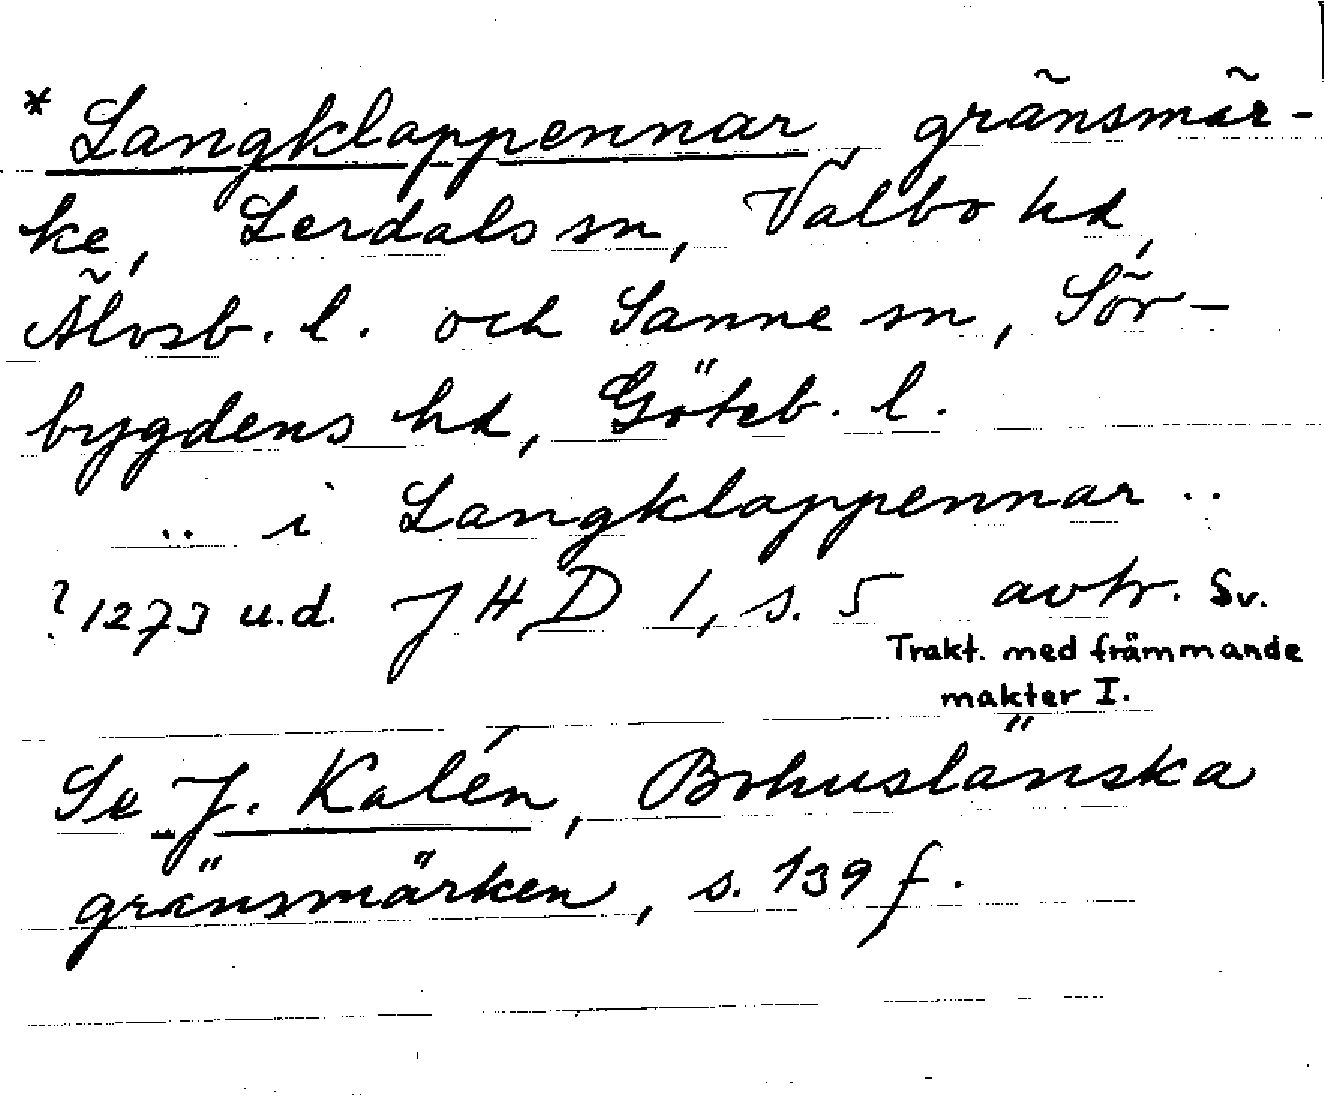 * Langklappennar, gränsmär-
ke, Lerdals sn, Valbo hd,
Älvsb. l. och Sanne sn, Sör-
bygdens hd, Göteb. l.
.. i Langklappennar ..
? 1273 u.d. JHD 1, s. 5 avtr. Sv.
Trakt. med främmande
makter I.
Se J. Kalén, Bohuslänska
gränsmärken, s. 139 f.